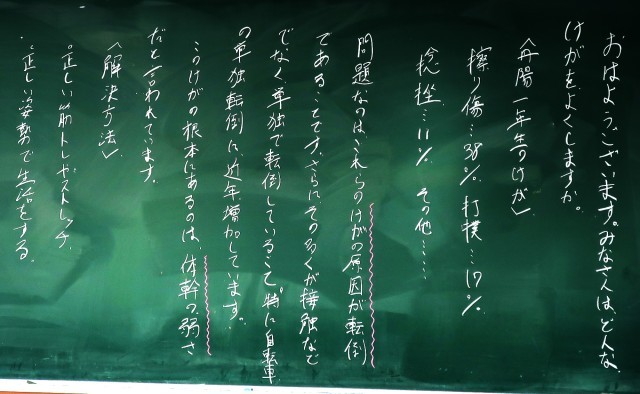 おはようございます。みなさんは、どんな
けがをよくしますか。
〈丹陽一年生のけが〉
擦り傷…38% 打撲…17%
捻挫…11% その他……
問題なのは、これらのけがの原因が転倒
であることです。さらにその多くが接触など
でなく単独で転倒していること。特に自転車
の単独転倒は、近年増加しています。
このけがの根本にあるのは、体幹の弱さ
だと言われています。
〈解決方法〉
・正しい筋トレやストレッチ
・正しい姿勢で生活をする。